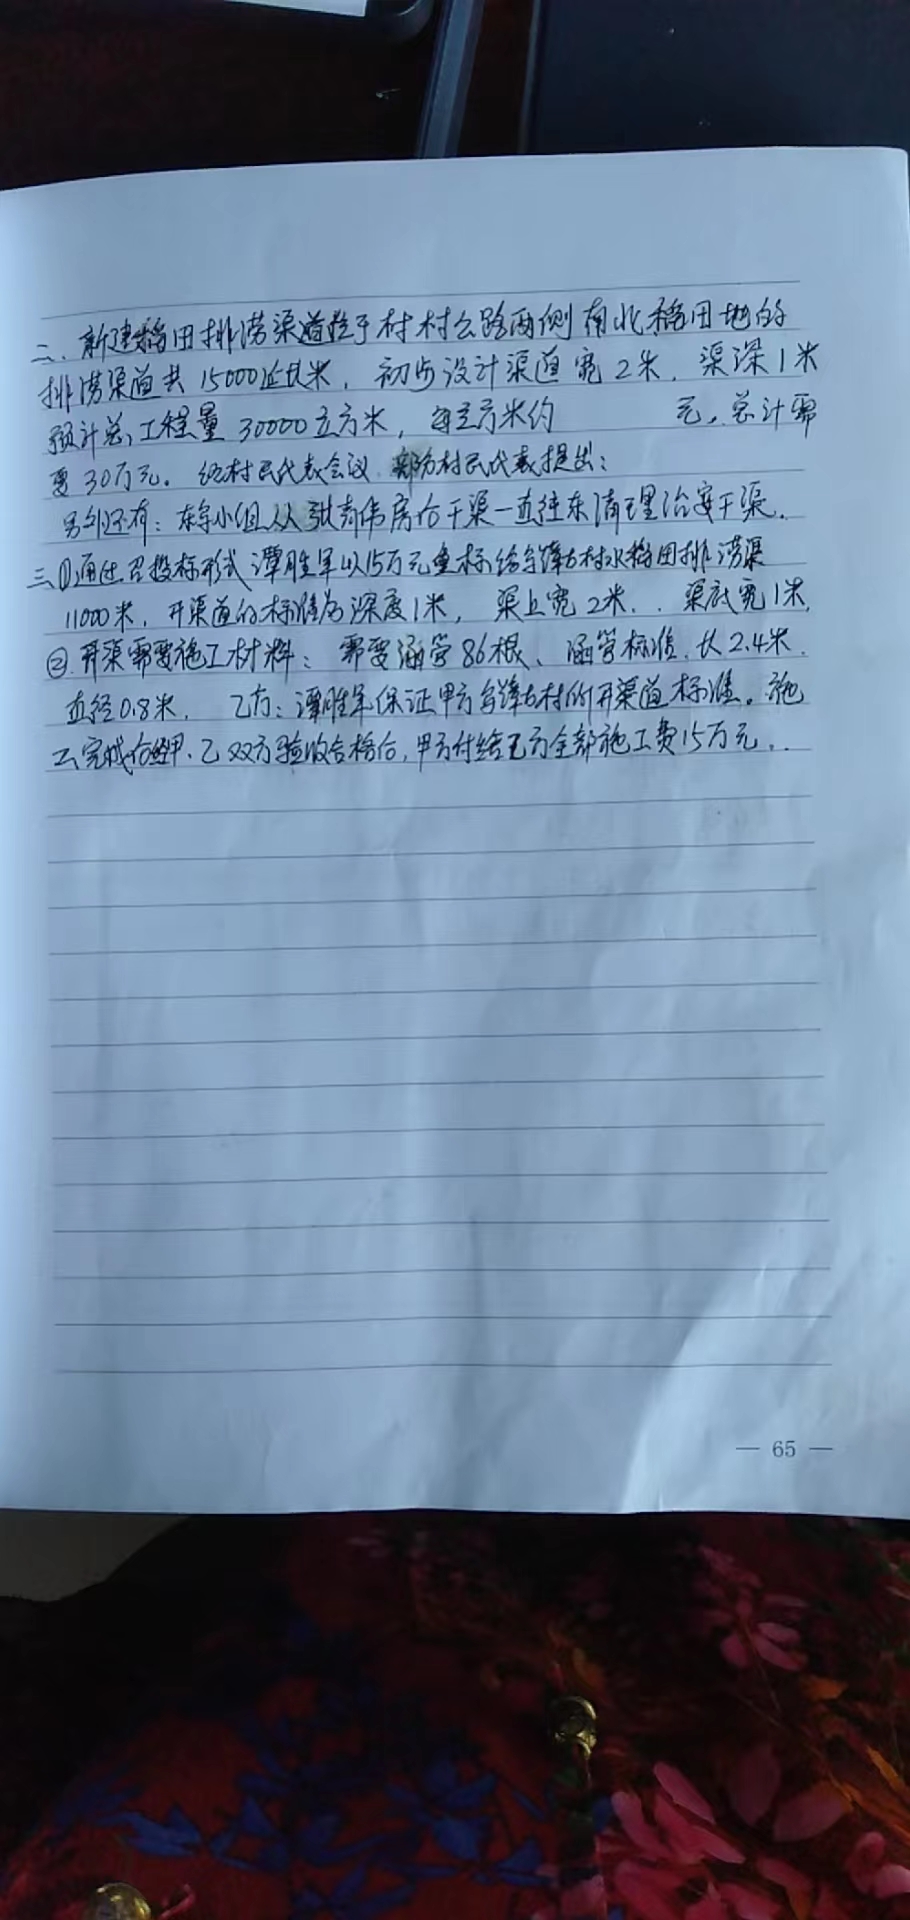 二、新建稻田排涝渠道位于村村公路两侧南北稻田地的
排涝渠道共15000延长米，初步设计渠道宽2米，渠深1米
预计总工程量30000立方米，每立方米约 元，总计需
要30万元。经村民代表会议，部分村民代表提出：
另外还有：东 小组从张 伟房后干渠一直往东清理治 干渠。
三、①通过召投标形式谭胜军以15万元 标给 村水稻田排涝渠
11000米，开渠道的标准为深度1米，渠上宽2米．．渠底宽1米，
②．开渠需要施工材料：需要涵管86根、涵管标准．长2.4米．
直径0.8米， 乙方：谭胜军保证甲方 村的开渠道标准。施
工完成后经甲．乙双方验收合格后，甲方付给乙方全部施工费15万元．．
— 65 —